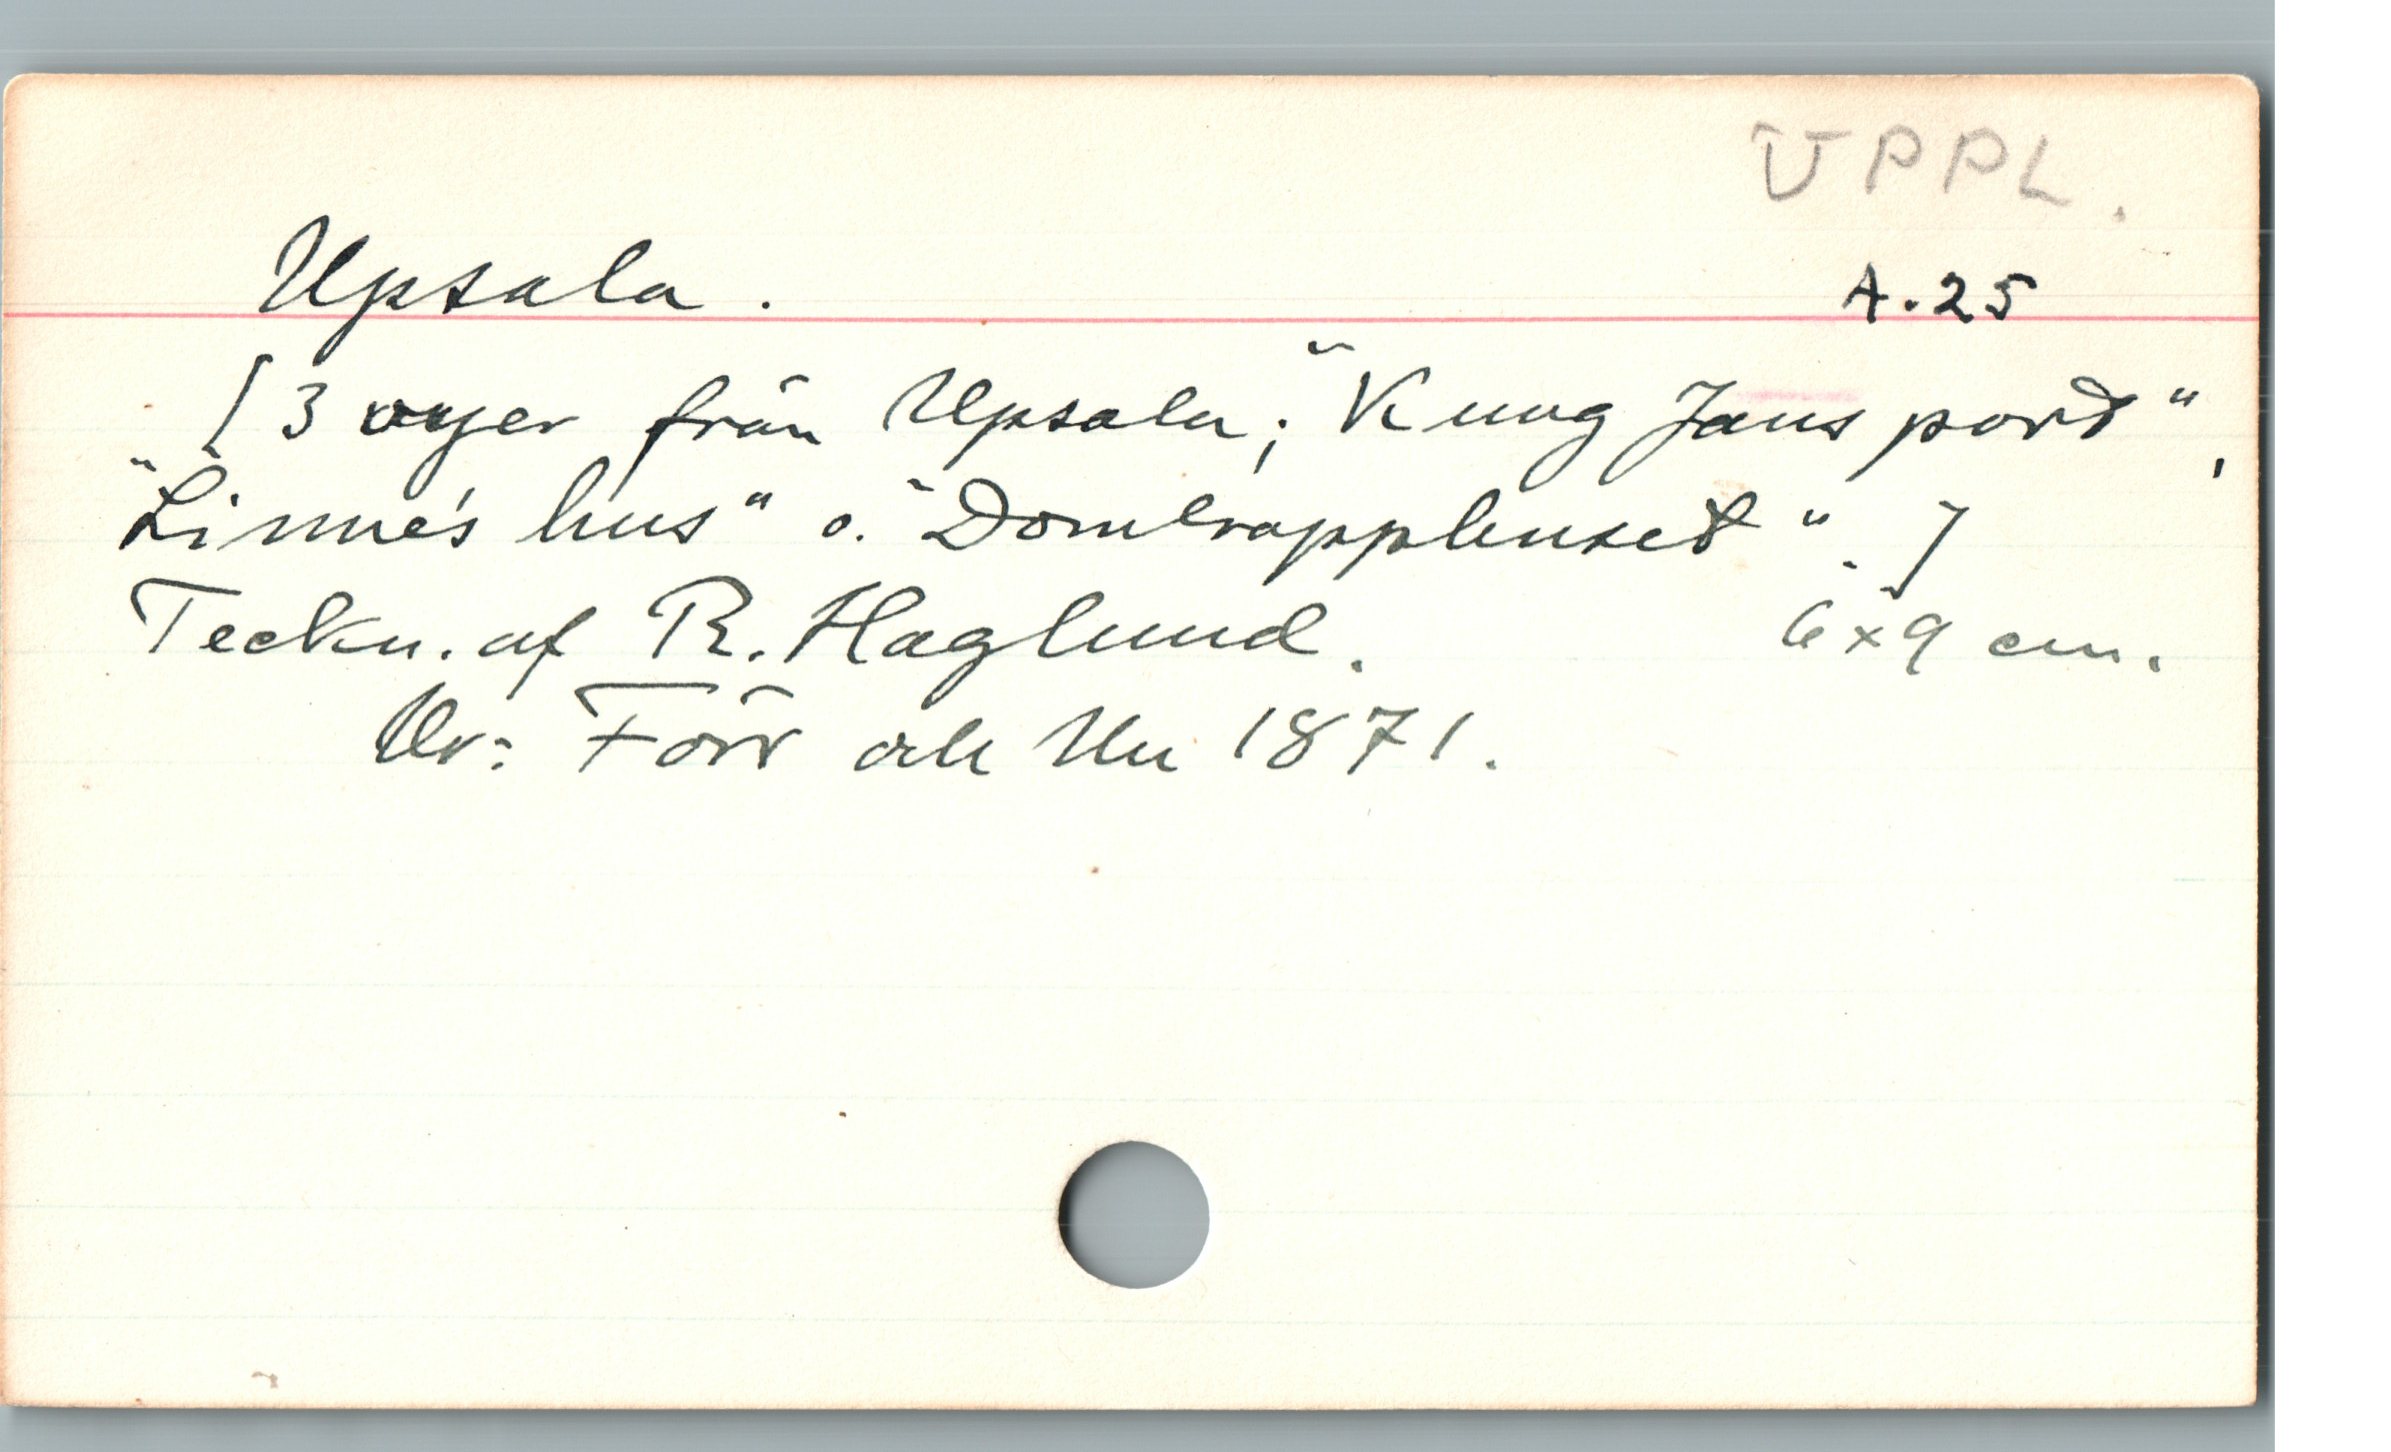 UPPL.
Upsala.
A.25
[3 vyer från Upsala; "Kung Jans port",
"Linné's hus" o. "Domtrapphuset".]
Teckn. af R. Haglund. 6x9 cm.
Ur: Förr och Nu 1871.